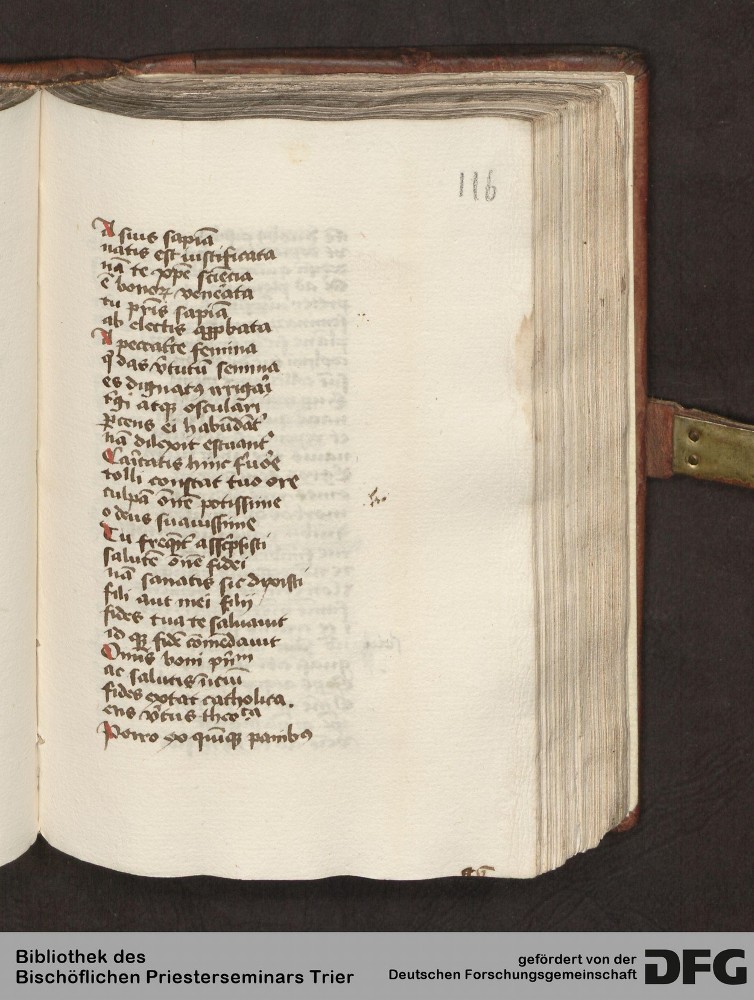 116
A suis sapīa
natis est iustificata
nā te xp̄e sciēcia
ē bonoꝝ venēata
tu pr̄is sapīa
ab electis aꝓbata
A peccat͛ce femina
q̄ das v͛tutū semina
es dignatꝰ irrigar͛
t͛gi atqꝫ osculari
ꝑcens ei habūdāt͛
nā dilexit estuant͛
Car͛itatis hinc fuōe
tolli constat tuo ore
culpā om̄e potissime
o deus suauissime
Tu freqn̄t͛ ass͛cpsisti
salutē om̄e fidei
nā sanatis sic dixisti
fili aut mei filij
fides tua te saluauit
id qꝫ fidē comēdauit
Omīs boni pͥm
ac salutis
fides extat catholica.
ens v͛tus theoᶜᵃ
Porro xp̄ quīqꝫ panibꝰ
Bibliothek des
Bischöflichen Priesterseminars Trier
gefördert von der
Deutschen Forschungsgemeinschaft
DFG